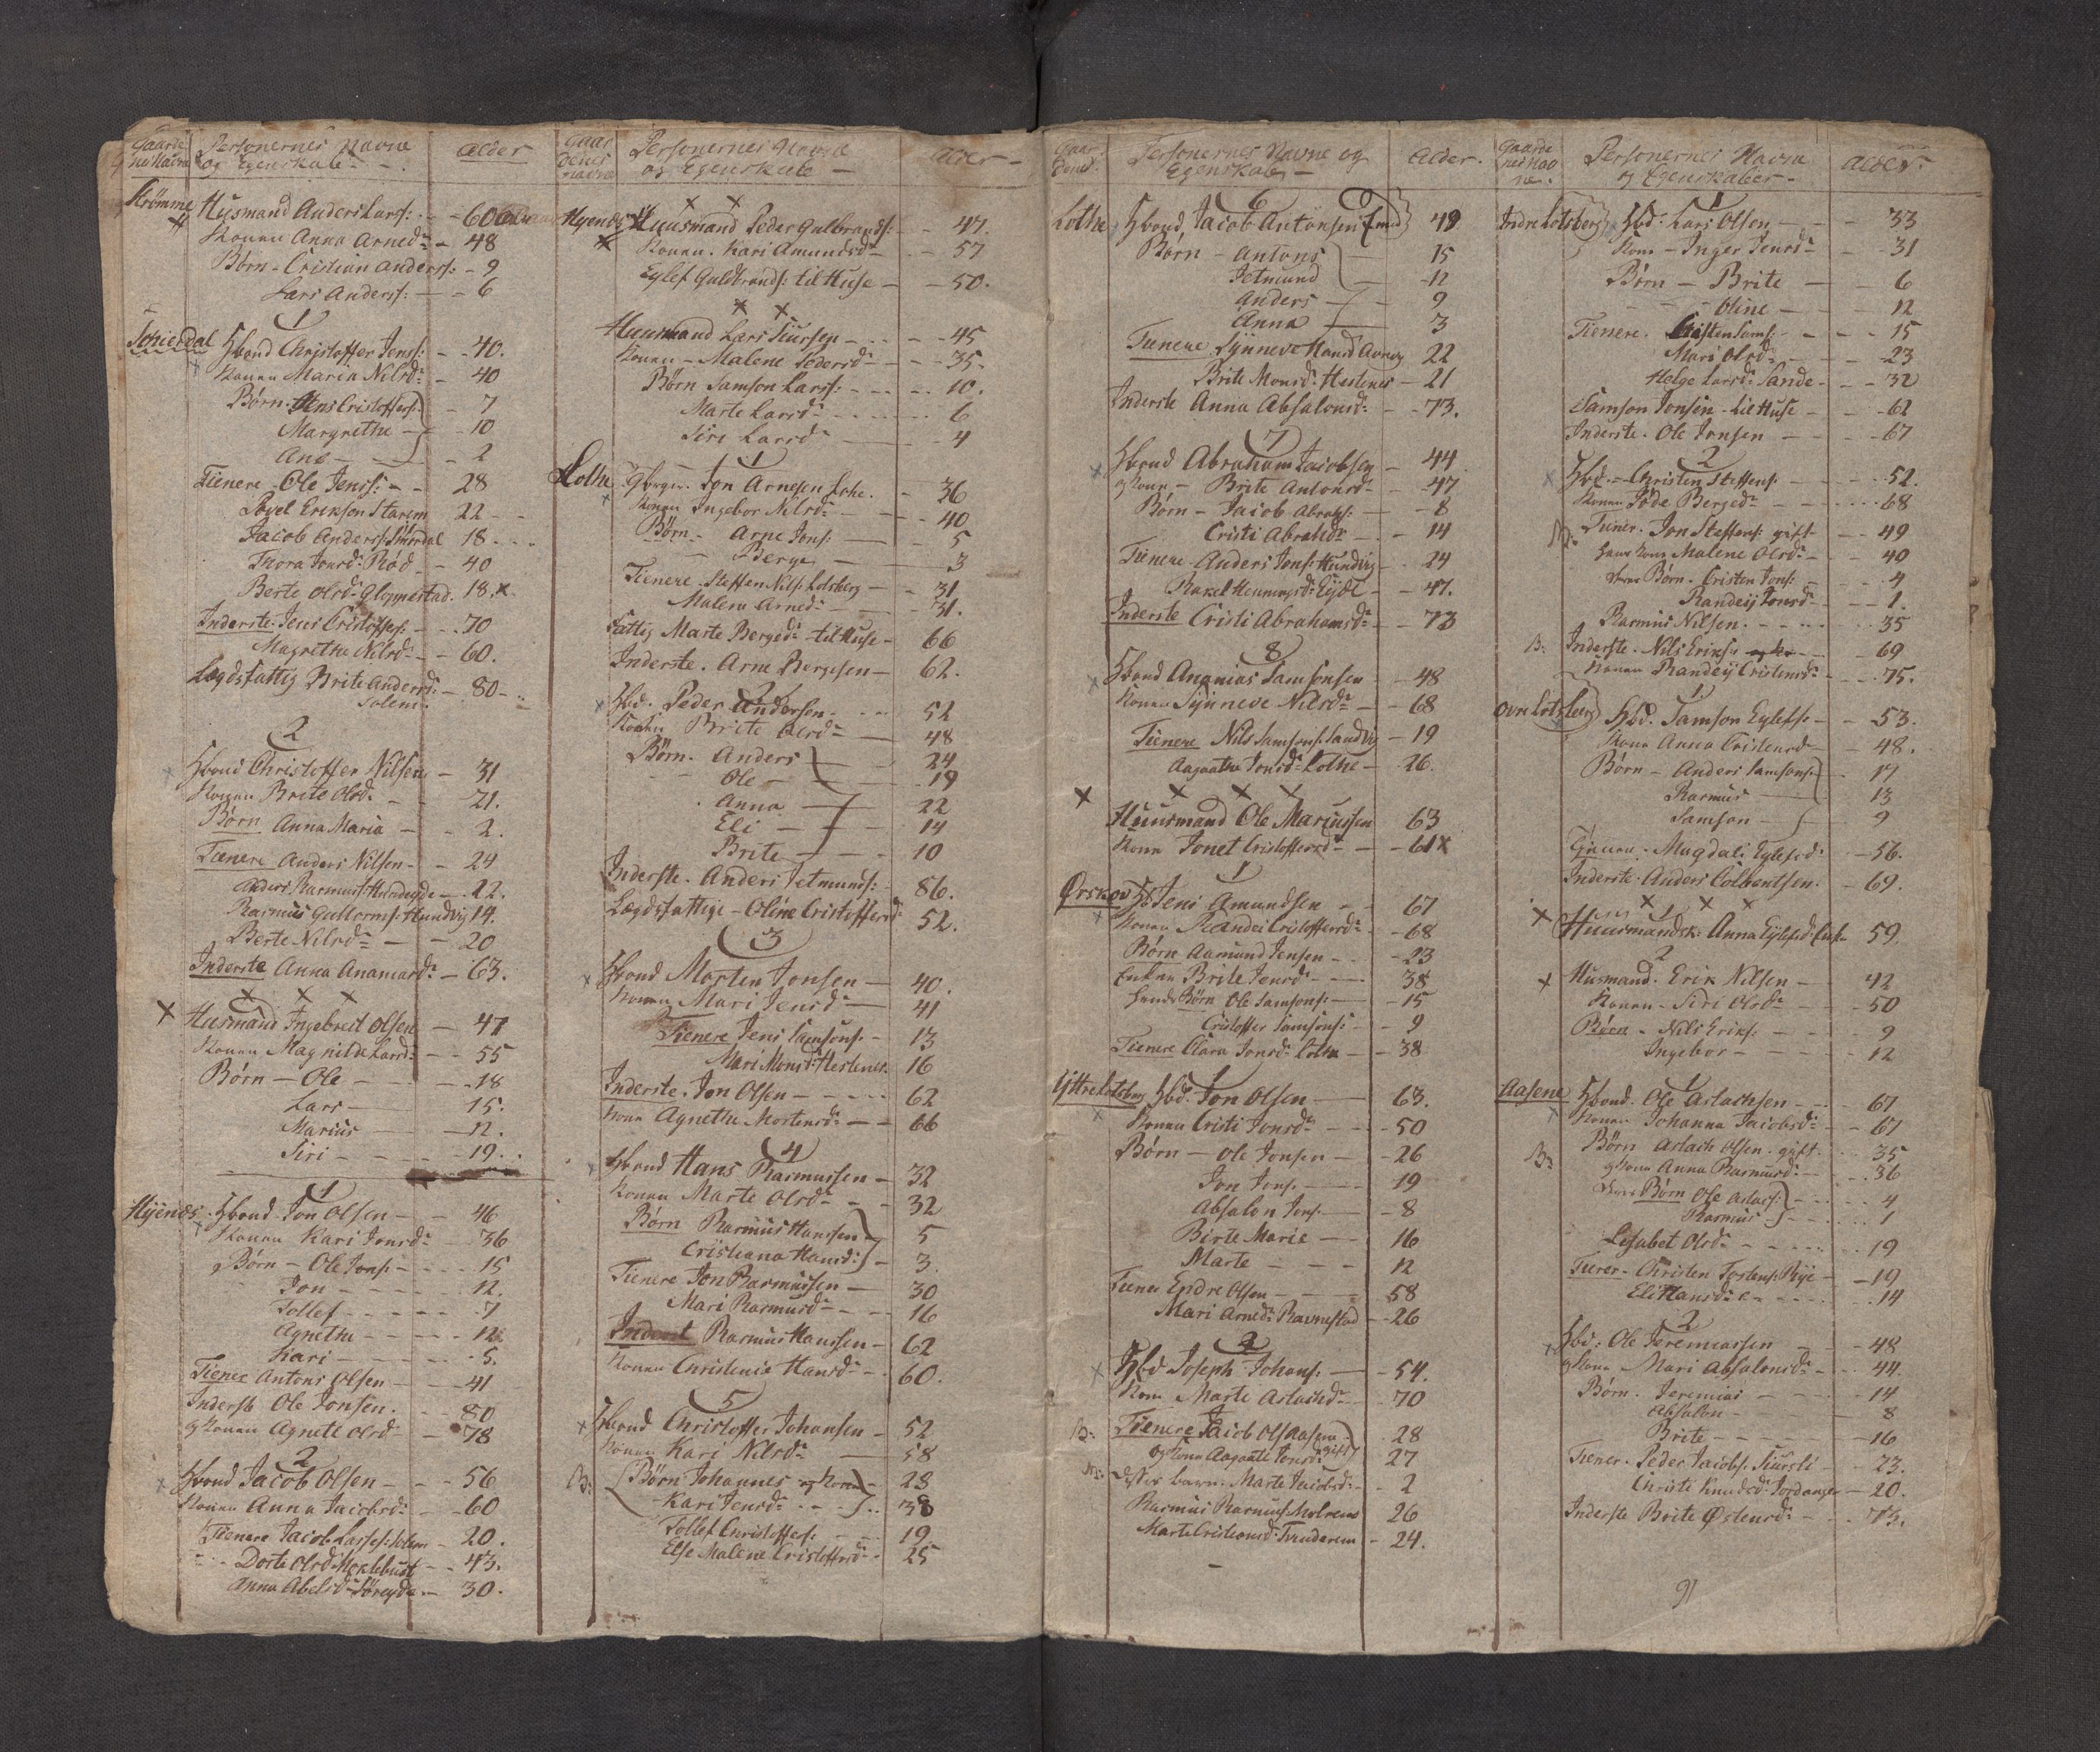 Gaarde nes Navne
Personernes Navne og Egenskabe
Alder
Strømme
Husmand Anders Larss: 60
Konen Anna Arnedr 48
Børn - Cristian Anderss: 9
Lars Anderss: 6
1
Hbond Christoffer Jenss: 40.
Konen Maria Nilsdr 40
Børn Jens Cristoffers: 7
Margrethe 10
Ane 2
Tienere Ole Jenss: 28
Erikson Starem 22
Jacob Anderss Smørdal 18
Thora Jonsdr Rød 40
Berte Olsdr Gloppestad. 18. x
Inderste Jens Cristoffers: 70
Magrethe Nilsdr 60.
Lægdsfattig Brite Andersdr 80
Solem
2
Hbond Christoffer Nilsen 31
Konen Brite Olsdr 21.
Børn Anna Maria 2.
Tienere Anders Nilsen 24
Anders Rasmuss Hundeyde 22.
Rasmus Gullorms: Hundvig 14.
Berte Nilsdr 20
Inderste Anna Ananiasdr 63.
x x x x
Husmand Ingebreit Olsen 47
Konen Magnilde Larsdr 55
Børn - Ole 18
Lars 15.
Marius 12.
Siri 19.
1
Hyenes Hbond Jon Olsen 46
Konen Kari Jonsdr 36
Børn - Ole Jons: 15
Jon 12.
Tollef 7
Agnethe 12
Kari 5.
Tiener Antons Olsen 41
Inderst Ole Jonsen. 80
Konen Agnete Olsd 78
2
Hbond Jacob Olsen 56
Konen Anna Jacobsdr 60
Tienere Jacob Lasses: Solem 20.
Dorte Olsdr Mæklebust 43.
Anna Abelsd Søreyde 30.
Gaardenes Navne
Personernes Navne og Egenskabe
Alder
x x
Hyenes Huusmand Peder Gulbrands: 47.
Konen. Kari Amundsdr 57
Eylef Guldbrands: til Huse 50.
x x
Huusmand Lars Siursen 45
Konen - Malene Pedersdr 35
Børn Samson Larss: 10.
Marte Larsdr 6
Siri Larsdr 4
1
Lothe Jon Arnesen Lothe. 36
Konen Ingebor Nilsdr 40
Børn - Arne Jons: 5
Berge 3
Tienere Steffen Nils: Lotsberg 31
Malene Arnedr 31.
Fattig Marte Bergedr til Huse 66
Inderste. Arne Bergesen 62.
2
Hbd. Peder Andersen 52
Konen Brite Olsdr 48
Børn. Anders 24
Ole 19
Anna 22
Eli 14
Brite 10
Inderste. Anders Jetmunds: 86.
Lægdsfattige - Oline Cristoffersdr 52.
3
Hbond Morten Jonsen 40.
Konen Mari Jensdr 41
Tienere Jens Samsons: 13
Mari Monsdr Hestenes 16
Inderste. Jon Olsen 62
Kone Agnethe Mortensdr 66
4
Hbond Hans Rasmussen 32
Konen Marte Olsdr 32
Børn Rasmus Hansen 5
Cristiana Hansdr 3.
Tienere Jon Rasmussen 30
Mari Rasmusdr 16
Inderst Rasmus Hansen 62
Konen Christence Hansdr 60.
5
Hbond Christoffer Johansen 52
Konen Kari Nilsdr 58
B: Børn Johannes og Kone 28
Kari Jensdr 38
Tollef Christoffers: 19
Else Malene Cristoffersdr 25
Personernes Navne og Egenskab
Alder.
6
Lothe Hbond Jacob Antonsen Em: 49
Børn - Antons 15
Jetmund 12
Anders 9
Anna 3
Tienere Synneve Hansd 22
Brite Monsdr Hestenes 21
Inderste Anna Absalonsdr 73.
7
Hbond Abraham Jacobsen 44
Konen - Brite Antonsdr 47
Børn - Jacob Abrahs: 8
Cristi Abrahdr 14
Tienere Anders Jons: Hundvig 24
Rakel Henningsdr Eyde 47.
Inderste Cristi Abrahamsdr 73
8
Hbond Ananias Samsonsen 48
Konen Synneve Nilsdr 68
Tienere Nils Samsons: Sandvig 19
Aagaathe Jonsdr Lothe 26.
x x x x
Huusmand Ole Mariussen 63
Kone Jonet Cristoffersdr 61 x
1
Ørskov Hb Jens Amundsen 67
Konen Randei Cristoffersdr 68
Børn Aamund Jensen 23
Enken Brite Jensdr 38
Hendes Børn Ole Samsons: 15
Cristoffer Samsons: 9
Tienere Clara Jonsdr Lothe 38
1
Yttre Lotsberg Hbd: Jon Olsen 63.
Konen Cristi Jonsdr 50
Børn - Ole Jonsen 26
Jon Jons: 19
Absalon Jons: 8
Birte Marie 16
Marte 12
Tiener Endre Olsen 58
Mari Arnedr Ravnestad 26
2
Hbd Joseph Johans: 54.
Kone Marte Aslachdr 70
B: Tienere Jacob Ols Aasene 28
og Kone Aagaate Jonsdr gift 27
Disses barn. Marte Jacobsdr 2
Rasmus Rasmuss Molrem 26
Marte Cristensdr 24.
Gaarde nes Navne
Personernes Navne og Egenskaber
Alder.
1
Indre Lotsberg Hbd: Lars Olsen 33
Kone - Inger Jensdr 31
Børn - Brite 6
Oline 12
Tienere. Cristen Sams: 15
Mari Olsdr 23
Helge Larsdr Sande 32
Samson Jonsen til Huse 62
Inderste. Ole Jonsen 67
2
Hbd: Christen Steffens: 52.
Konen Bergedr 68
Tiener. Jon Steffens: gift 49
hans Kone Malene Olsdr 40
deres Børn. Cristen Jons: 4
Randeij Jonsd 1.
Rasmus Nilsen 35
B: Inderste. Nils Eriks: 69
Konen Randeij Cristensdr 75.
1
Øvre Lotsberg Hbd. Samson Eylefs: 53.
Kone Anna Cristensdr 48.
Børn - Anders Samsons: 17
Rasmus 13
Samson 9
Magdali Eylefsdr 56.
Inderste. Anders Colbentsen. 69.
x x x x
Huusmandsk. Anna Eylefsd: Enke 59.
2
x Husmand. Erik Nilsen 42
Konen Siri Olsdr 50
Børn - Nils Eriks: 9
Ingebor 12
1
Aasene Hbond. Ole Aslachsen 67
Konen Johanna Jacobsdr 67
B: Børn Aslach Olsen. gift 35
Kone Anna Rasmusdr 36
deres Børn Ole Aslacs: 4
Rasmus 1
Lisabet Olsdr 19
Tiener. Christen Tostens: Rye 19
Eli Hansdr 14
2
Hbd: Ole Jeremiassen 48
Kone - Mari Absalonsdr 44
Børn. Jeremias 14
Absalon 8
Brite 16
Tiener. Peder Jacobs. 23.
Christi Knudsd 20.
Inderste Brite Østensdr 73.
91